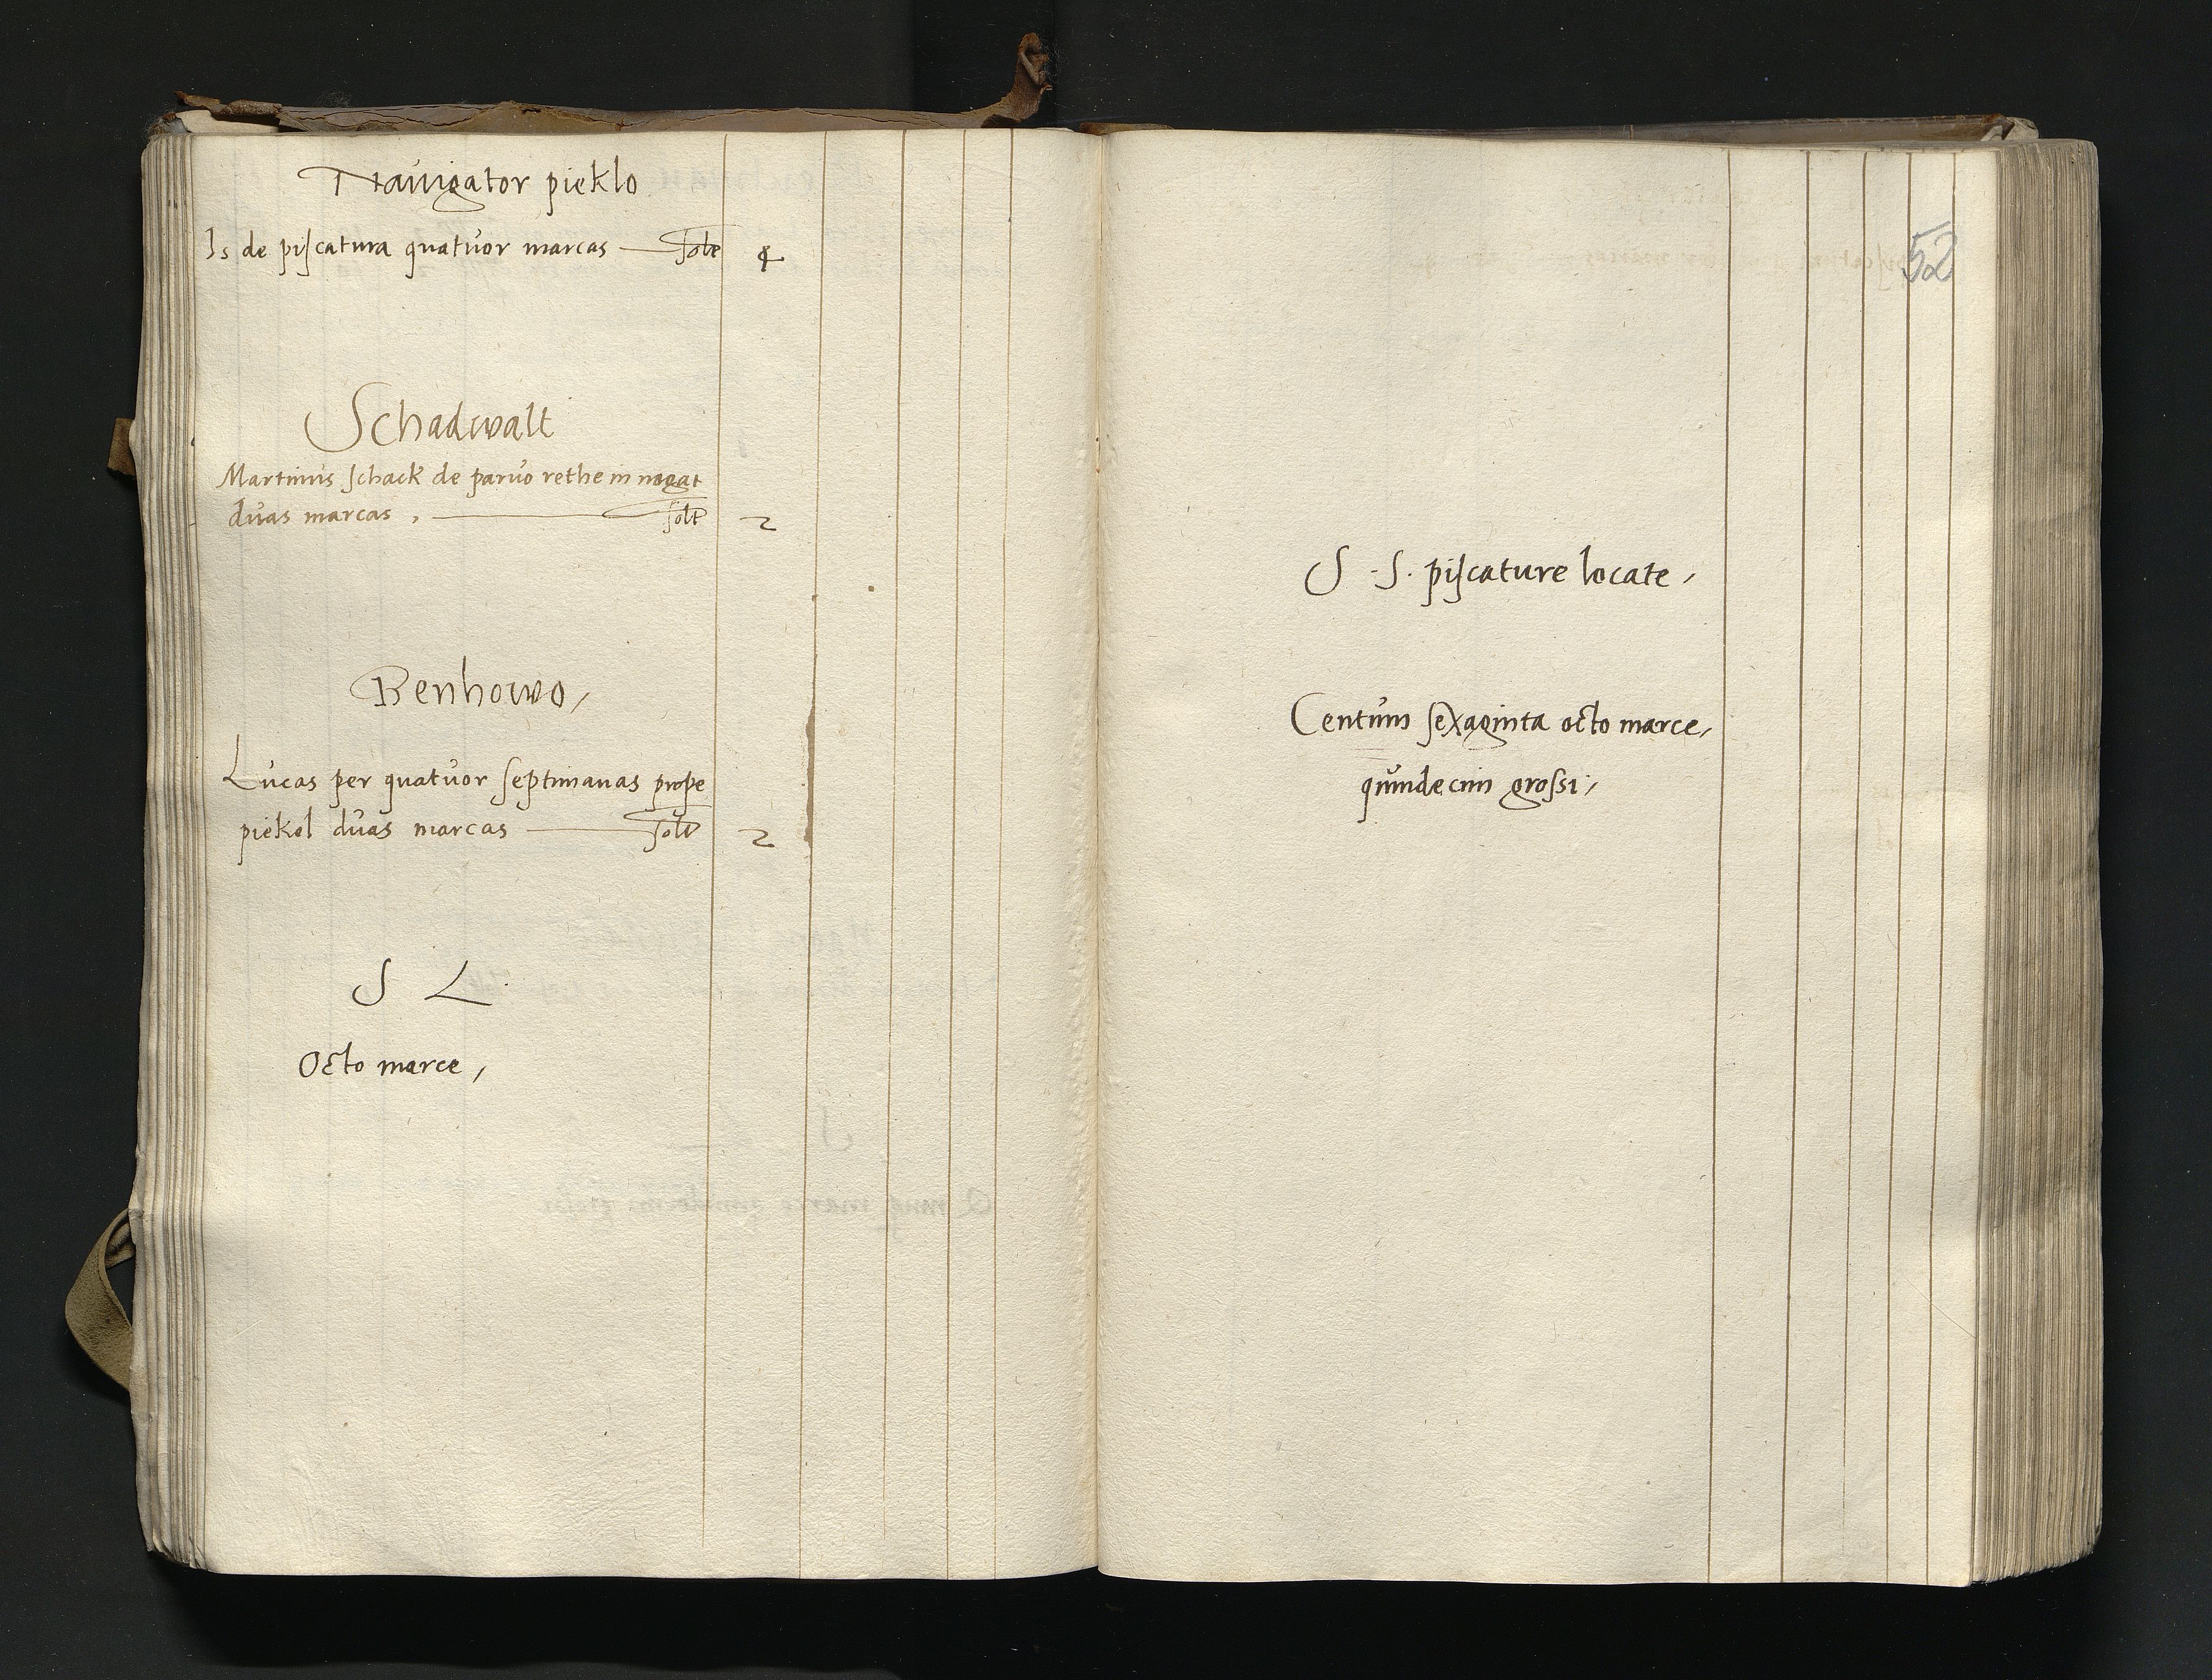 Nauigator pieklo
Is de piscatura quatuor marcas — solt 4
Schadwalt
Martinus schack de paruo rethe in nogat
duas marcas, — solt 2
Benhowo,
Lucas per quatuor septimanas prope
piekel duas marcas — solt 2
S L
Octo marce,
52
S S. piscature locate,
Centum sexaginta octo marce,
quindecim grossi,